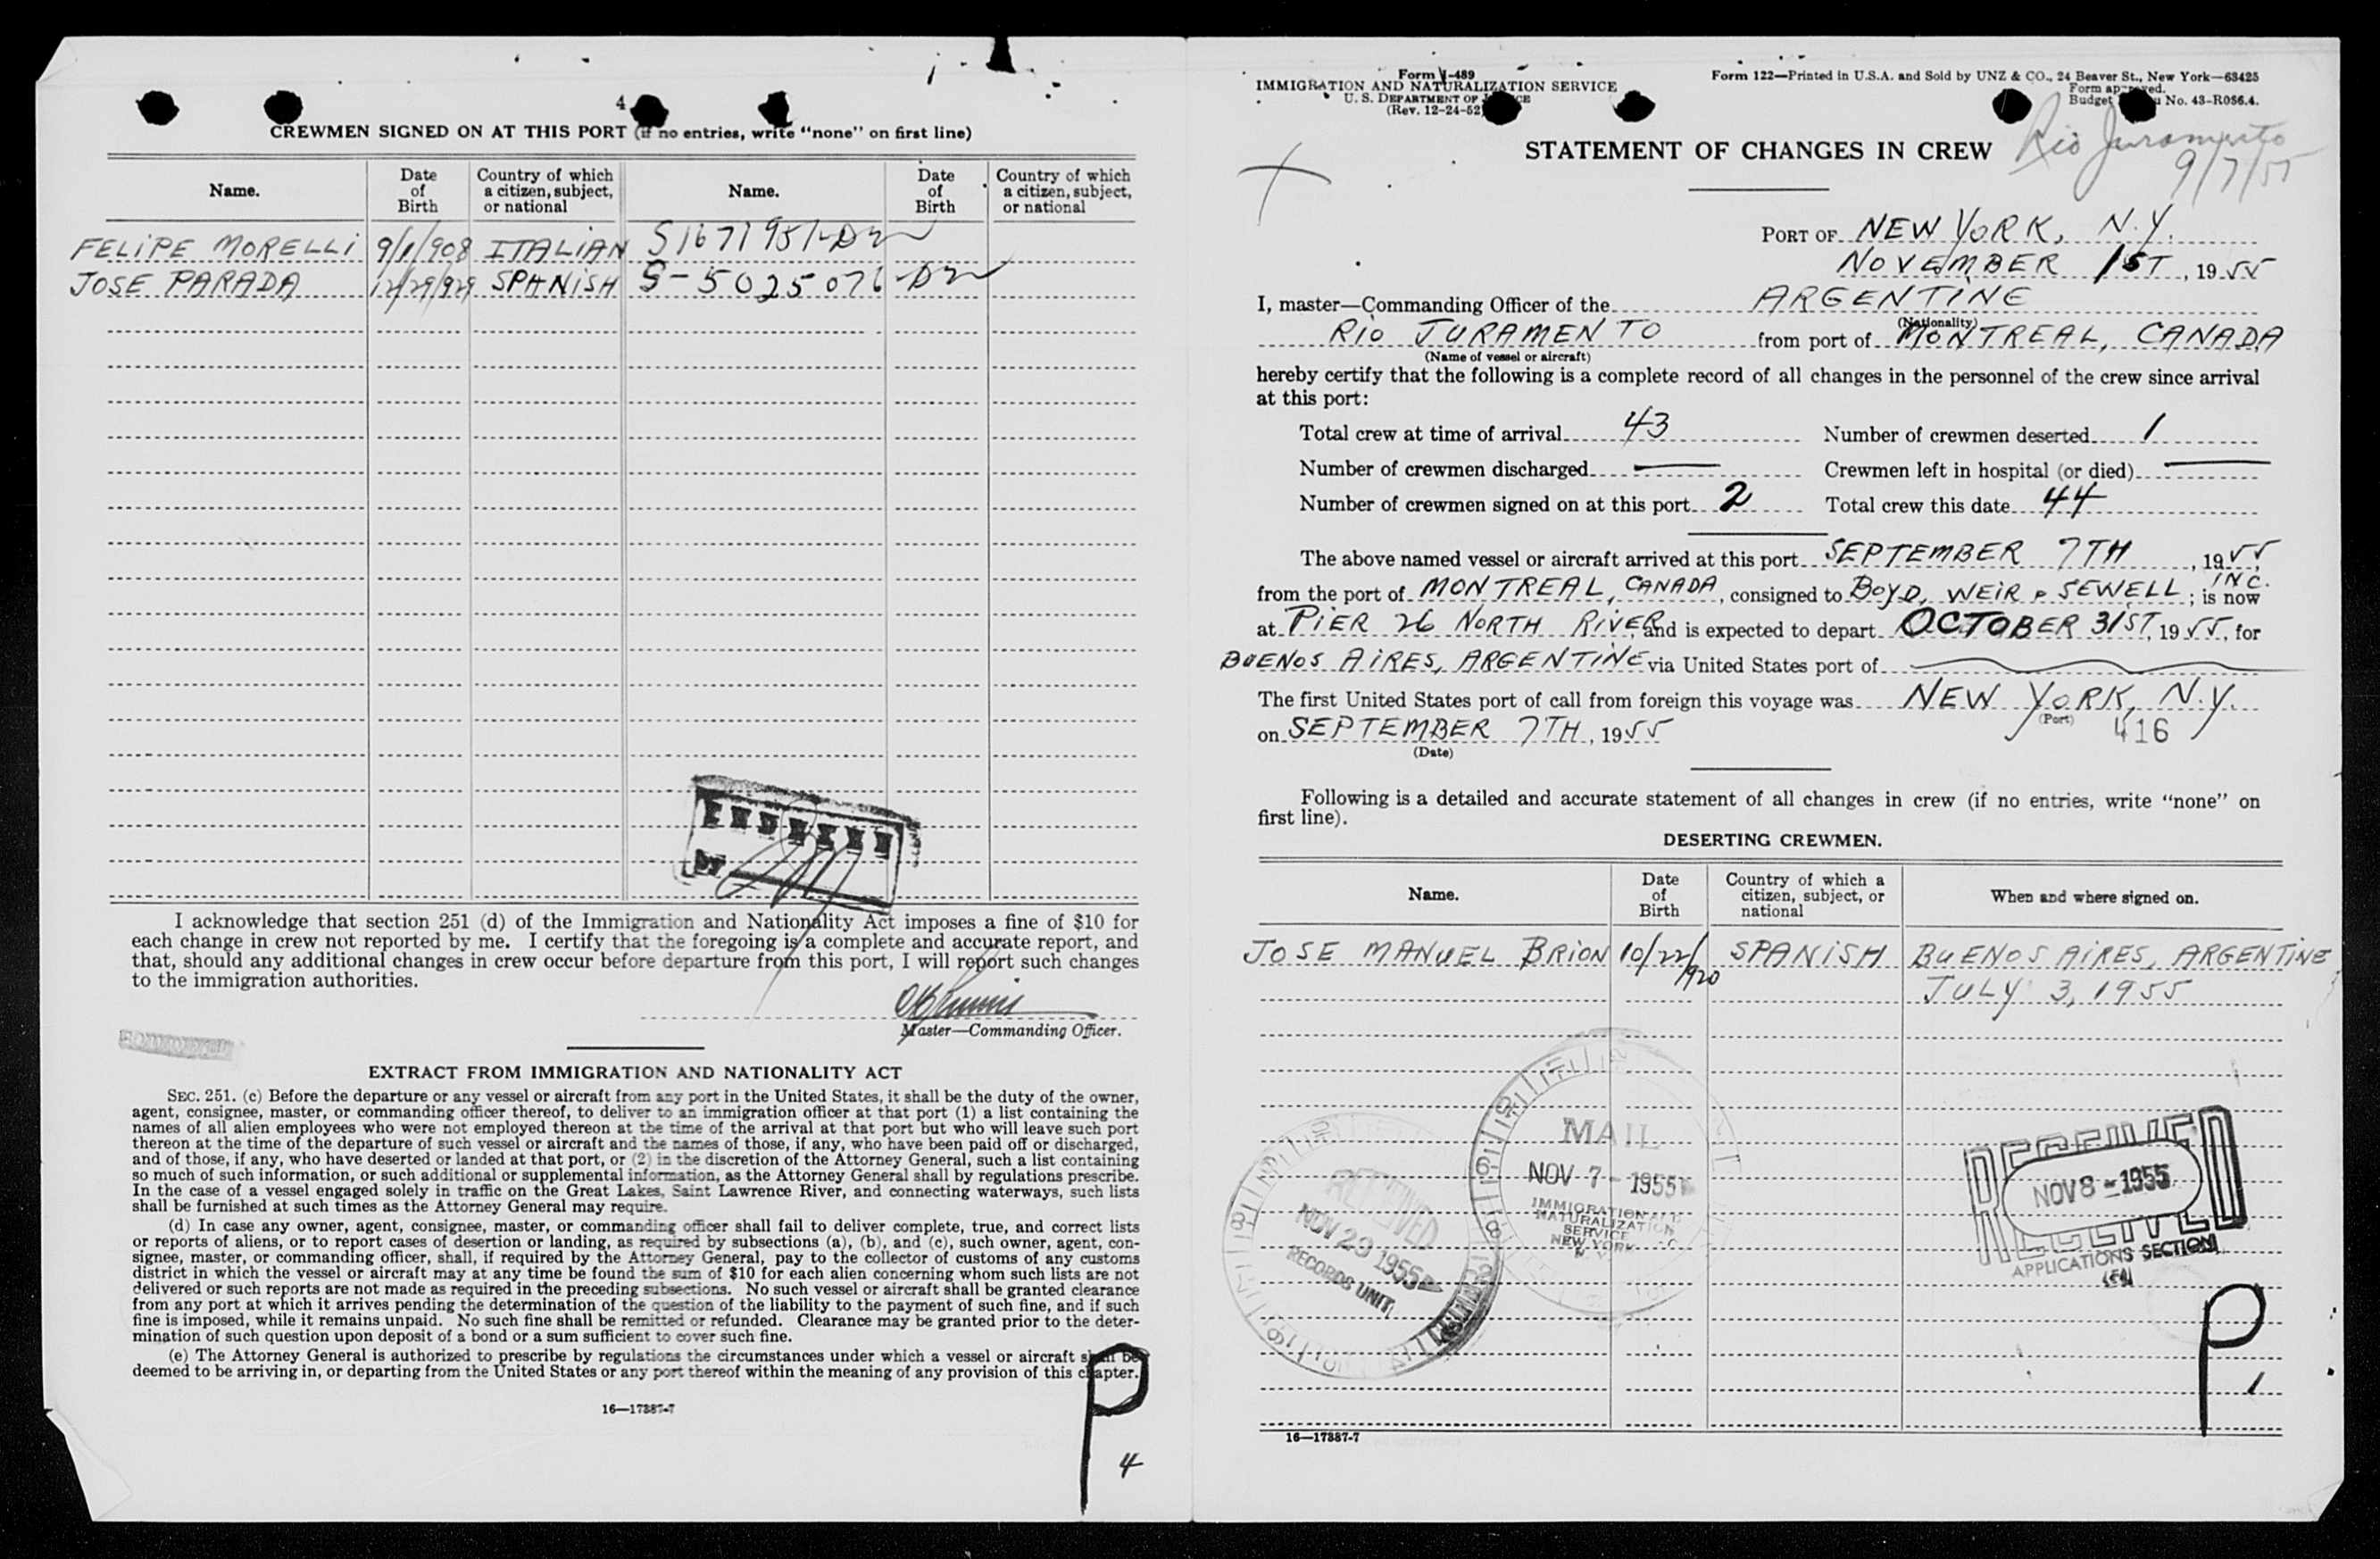 4
CREWMEN SIGNED ON AT THIS PORT (if no entries, write "none" on first line)
Name. Date of Birth Country of which a citizen, subject, or national Name. Date of Birth Country of which a citizen, subject, or national
FELIPE MORELLI 9/1/908 ITALIAN
JOSE PARADA 12/29/929 SPANISH S-5025076
by
I acknowledge that section 251 (d) of the Immigration and Nationality Act imposes a fine of $10 for
each change in crew not reported by me. I certify that the foregoing is a complete and accurate report, and
that, should any additional changes in crew occur before departure from this port, I will report such changes
to the immigration authorities.
Master—Commanding Officer.
EXTRACT FROM IMMIGRATION AND NATIONALITY ACT
SEC. 251. (c) Before the departure or any vessel or aircraft from any port in the United States, it shall be the duty of the owner,
agent, consignee, master, or commanding officer thereof, to deliver to an immigration officer at that port (1) a list containing the
names of all alien employees who were not employed thereon at the time of the arrival at that port but who will leave such port
thereon at the time of the departure of such vessel or aircraft and the names of those, if any, who have been paid off or discharged,
and of those, if any, who have deserted or landed at that port, or (2) in the discretion of the Attorney General, such a list containing
so much of such information, or such additional or supplemental information, as the Attorney General shall by regulations prescribe.
In the case of a vessel engaged solely in traffic on the Great Lakes, Saint Lawrence River, and connecting waterways, such lists
shall be furnished at such times as the Attorney General may require.
(d) In case any owner, agent, consignee, master, or commanding officer shall fail to deliver complete, true, and correct lists
or reports of aliens, or to report cases of desertion or landing, as required by subsections (a), (b), and (c), such owner, agent, con-
signee, master, or commanding officer, shall, if required by the Attorney General, pay to the collector of customs of any customs
district in which the vessel or aircraft may at any time be found the sum of $10 for each alien concerning whom such lists are not
delivered or such reports are not made as required in the preceding subsections. No such vessel or aircraft shall be granted clearance
from any port at which it arrives pending the determination of the question of the liability to the payment of such fine, and if such
fine is imposed, while it remains unpaid. No such fine shall be remitted or refunded. Clearance may be granted prior to the deter-
mination of such question upon deposit of a bond or a sum sufficient to cover such fine.
(e) The Attorney General is authorized to prescribe by regulations the circumstances under which a vessel or aircraft shall be
deemed to be arriving in, or departing from the United States or any port thereof within the meaning of any provision of this chapter.
16—17887-7
P
4
Form I-489
IMMIGRATION AND NATURALIZATION SERVICE
U. S. DEPARTMENT OF JUSTICE
(Rev. 12-24-52)
Form 122—Printed in U.S.A. and Sold by UNZ & CO., 24 Beaver St., New York—63425
Form approved.
Budget Bureau No. 43-R056.4.
STATEMENT OF CHANGES IN CREW
Rio Juramento
9/7/55
PORT OF NEW YORK, N.Y.
NOVEMBER 1ST, 1955
I, master—Commanding Officer of the ARGENTINE
(Nationality)
RIO JURAMENTO from port of MONTREAL, CANADA
(Name of vessel or aircraft)
hereby certify that the following is a complete record of all changes in the personnel of the crew since arrival
at this port:
Total crew at time of arrival 43 Number of crewmen deserted 1
Number of crewmen discharged — Crewmen left in hospital (or died) —
Number of crewmen signed on at this port 2 Total crew this date 44
The above named vessel or aircraft arrived at this port SEPTEMBER 7TH, 1955
from the port of MONTREAL, CANADA, consigned to BOYD, WEIR & SEWELL INC.; is now
at PIER 26 NORTH RIVER and is expected to depart OCTOBER 31ST, 1955, for
BUENOS AIRES, ARGENTINE via United States port of
The first United States port of call from foreign this voyage was NEW YORK, N.Y.
(Port)
416
on SEPTEMBER 7TH, 1955
(Date)
Following is a detailed and accurate statement of all changes in crew (if no entries, write "none" on
first line).
DESERTING CREWMEN.
Name. Date of Birth Country of which a citizen, subject, or national When and where signed on.
JOSE MANUEL BRION 10/22/920 SPANISH BUENOS AIRES, ARGENTINE
JULY 3, 1955
MAIL
NOV 7 - 1955
IMMIGRATION AND
NATURALIZATION
SERVICE
NEW YORK
N.Y.
RECEIVED
NOV 29 1955
RECORDS UNIT
RECEIVED
NOV 8 - 1955
RECEIVED
APPLICATIONS SECTION
P
1
16—17887-7